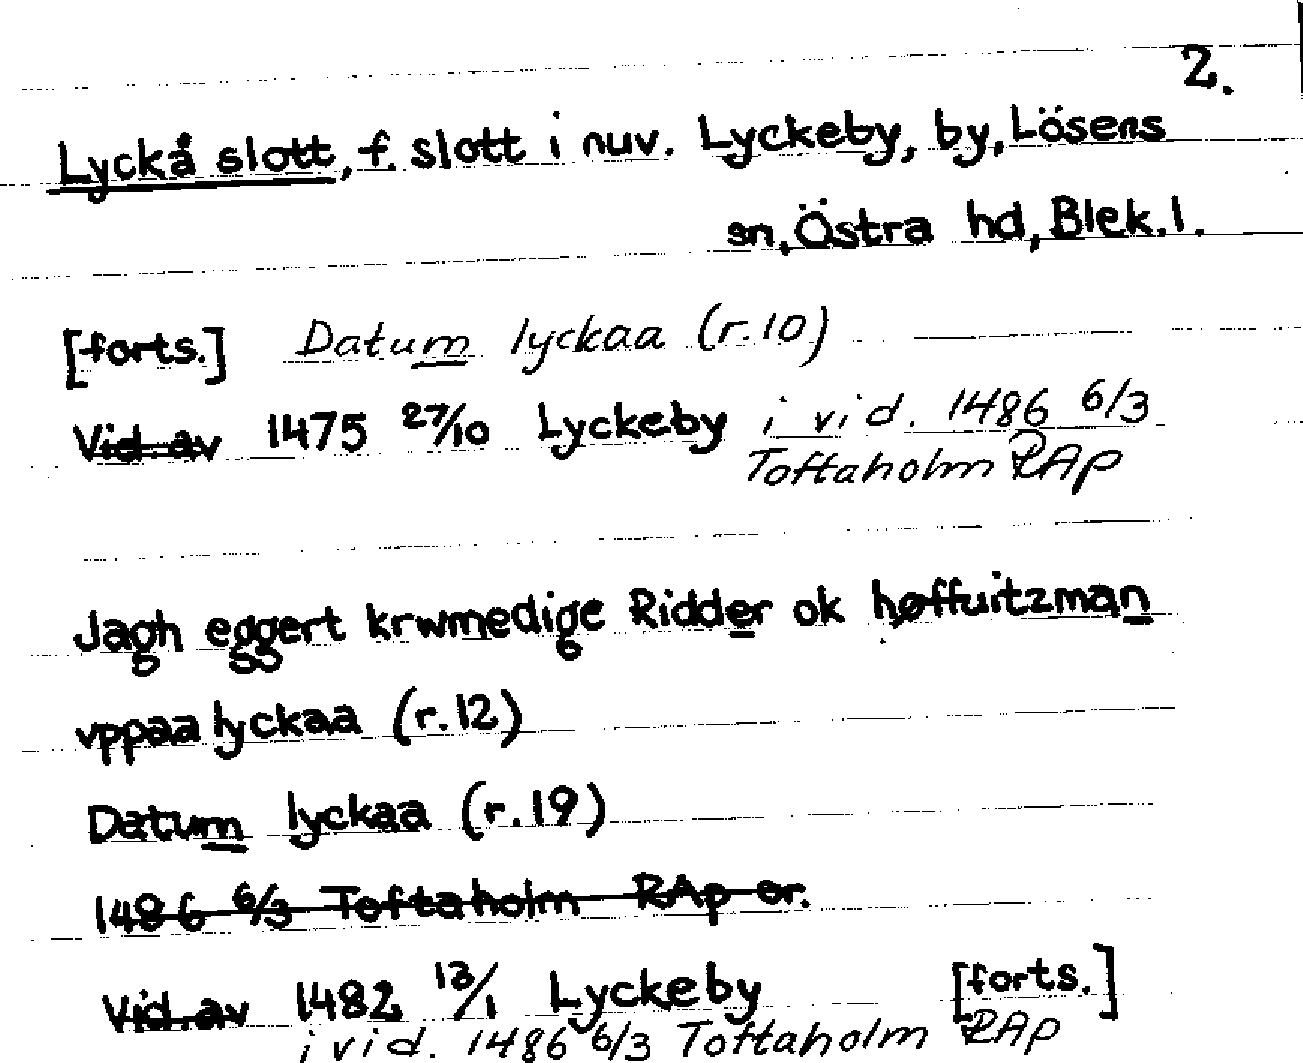 2.
Lyckå slott, f. slott i nuv. Lyckeby, by, Lösens
sn, Östra hd, Blek. l.
[forts.] Datum lyckaa (r.10)
Vid. av 1475 27/10 Lyckeby i vid. 1486 6/3
Toftaholm RAp
Jagh eggert krwmedige Ridder ok høffuitzman
vppaa lyckaa (r.12)
Datum lyckaa (r.19)
1486 6/3 Toftaholm RAp or.
Vid. av 1482 13/1 Lyckeby [forts.]
i vid. 1486 6/3 Toftaholm RAp